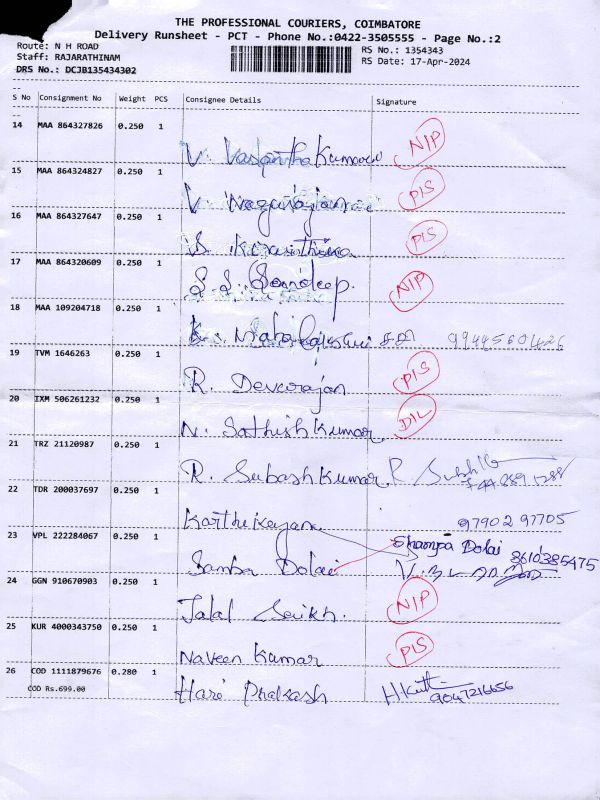 THE PROFESSIONAL COURIERS, COIMBATORE
Delivery Runsheet - PCT - Phone No.:0422-3505555 - Page No.:2
Route: N H ROAD
Staff: RAJARATHINAM
DRS No.: DCJB135434302
RS No.: 1354343
RS Date: 17-Apr-2024
S No Consignment No Weight PCS Consignee Details Signature
14 MAA 864327826 0.250 1
V. Vasantha Kumar NIP
15 MAA 864324827 0.250 1
V. Nagarajan PIS
16 MAA 864327647 0.250 1
S. PIS
17 MAA 864320609 0.250 1
S.S. Sandeep. NIP
18 MAA 109204718 0.250 1
K. Mahalakshmi
19 TVM 1646263 0.250 1
R. Devarajan PIS
20 IXM 506261232 0.250 1
N. Sathish Kumar DIL
21 TRZ 21120987 0.250 1
R. Subash Kumar. R
22 TDR 200037697 0.250 1
Karthikeyan 97902 97705
23 VPL 222284067 0.250 1
Samba Dolai Shampa Dolai 8610385475
24 GGN 910670903 0.250 1
Jalal Seikh. NIP
25 KUR 4000343750 0.250 1
Naveen Kumar PIS
26 COD 1111879676 0.280 1
COD Rs.699.00
Hari Prakash 9047216656